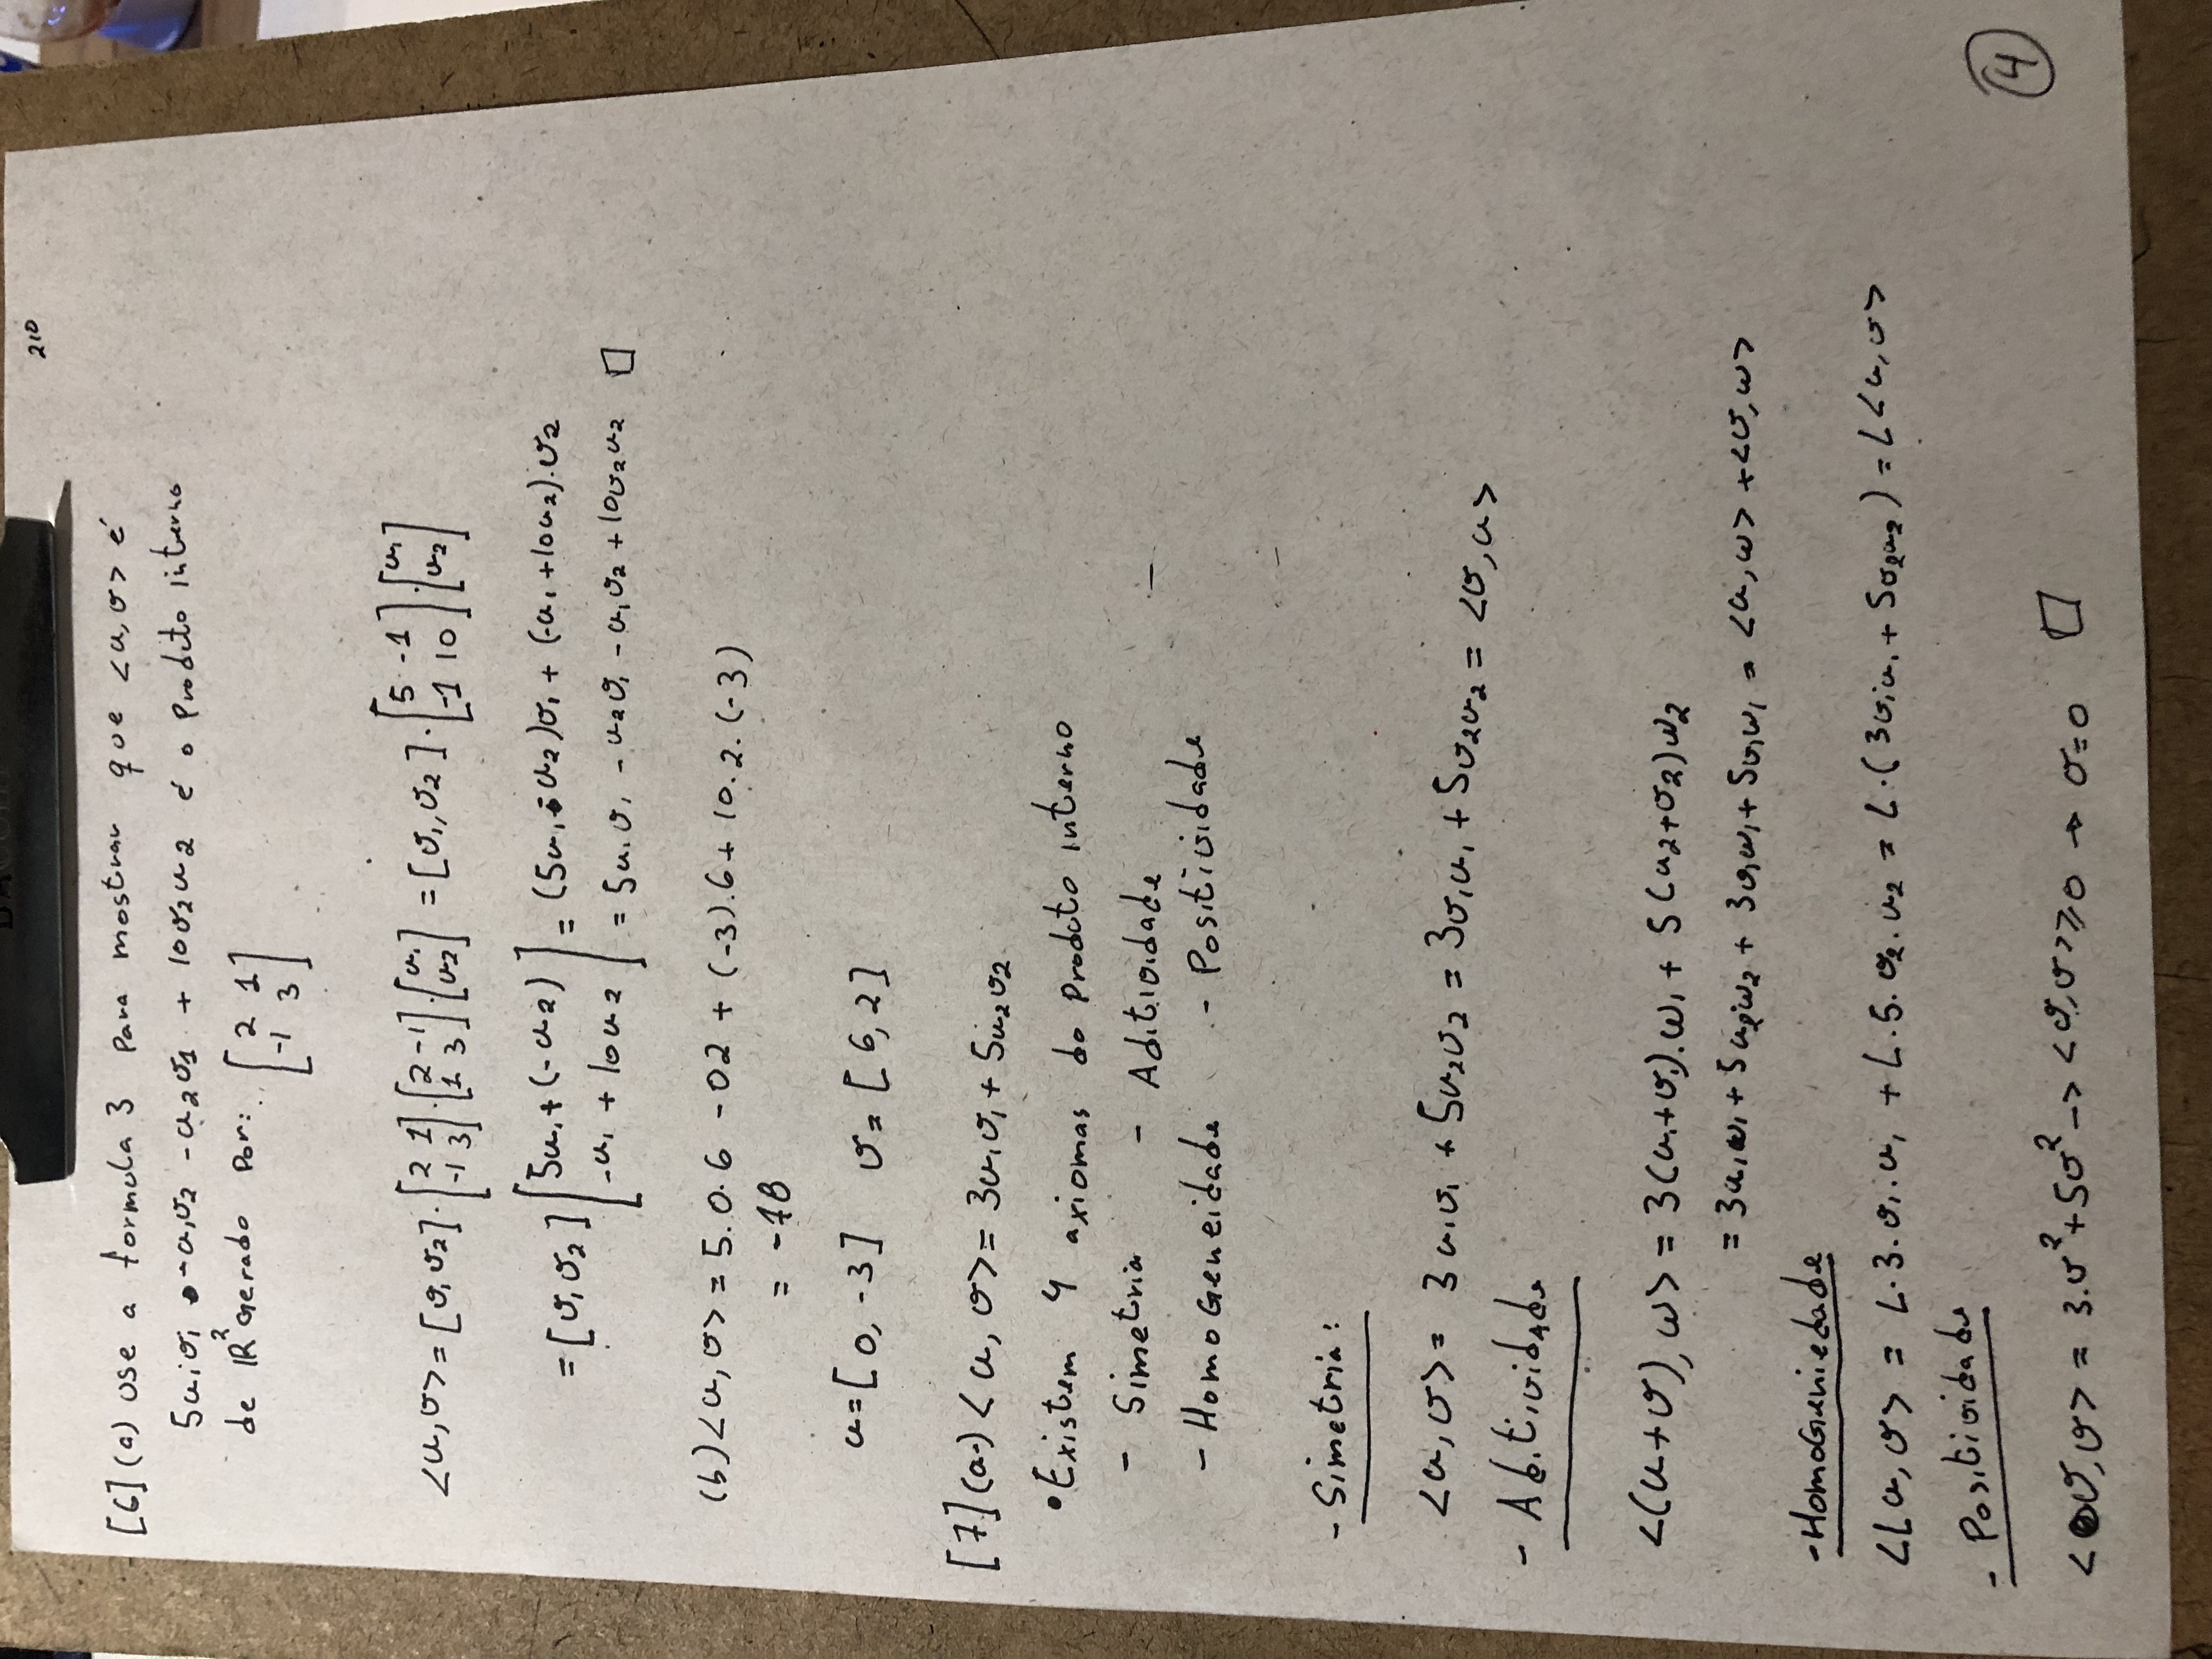 210
[6] (a) Use a formula 3 para mostrar que <u, v> é
5u₁v₁ - u₁v₂ - u₂v1 + 10v₂u2 é o produto interno
de IR² Gerado por: [2 1; -1 3]
<u, v> = [v₁ v₂] · [2 1; -1 3] · [2 -1; 1 3] · [u₁; u₂] = [v₁, v₂] · [5 -1; -1 10] · [u₁; u₂]
= [v₁ v₂] [5u₁ + (-u₂); -u₁ + 10u₂] = (5u₁ - u₂)v₁ + (-u₁ + 10u₂).v₂
= 5u₁v₁ - u₂v₁ - u₁v₂ + 10v₂u₂ □
(b) <u, v> = 5.0.6 - 02 + (-3).6 + 10.2.(-3)
= -78
u = [0, -3] v = [6, 2]
[7] (a.) <u, v> = 3u₁v₁ + 5u₂v₂
• Existem 4 axiomas do produto interno
- Simetria - Aditividade
- HomoGeneidade - Positividade
- Simetria:
<u, v> = 3u₁v₁ + 5u₂v₂ = 3v₁u₁ + 5v₂u₂ = <v, u>
- Aditividade
<(u+v), w> = 3(u₁+v₁).w₁ + 5(u₂+v₂)w₂
= 3u₁w₁ + 5u₂w₂ + 3v₁w₁ + 5v₁w₁ = <u, w> + <v, w>
- HomoGeniedade
<Lu, v> = L.3.v₁.u₁ + L.5.v₂.u₂ = L.(3v₁u₁ + 5v₂u₂) = L<u, v>
- Positividade
<v, v> = 3.v² + 5v² -> <v, v> ≥ 0 → v=0 □
4